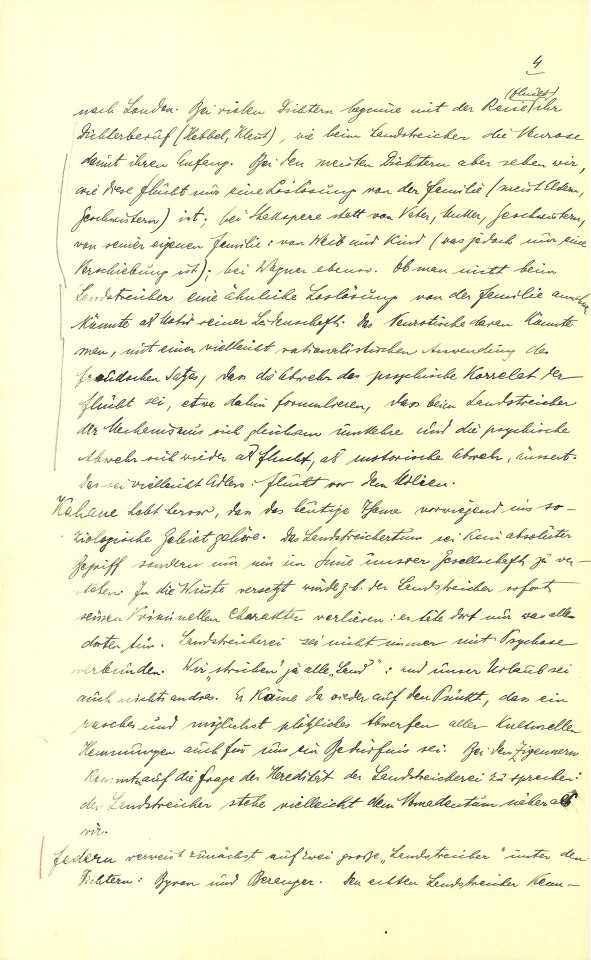 4
(Flucht)
nach London. Bei vielen Dichtern beginne mit der Reise ihr
Dichterberuf (Hebbel, Kleist), wie beim Landstreicher die Neurose
damit ihren Anfang. Bei den meisten Dichtern aber sehen wir,
wie diese Flucht nur eine Loslösung von der Familie (meist Eltern,
Geschwistern) ist; bei Shakspere statt von Vater, Mutter, Geschwistern,
von seiner eigenen Familie: von Weib und Kind (was jedoch nur eine
Verschiebung ist); bei Wagner ebenso. Ob man nicht beim
Landstreicher eine ähnliche Loslösung von der Familie annehmen
könnte als Motiv seiner Leidenschaft. Das Neurotische daran könnte
man, mit einer vielleicht rationalistischen Anwendung des
freudschen Satzes, dass die Abwehr das psychische Korrelat der
Flucht sei, etwa dahin formulieren, dass beim Landstreicher
der Mechanismus sich gleichsam umkehre und die psychische
Abwehr sich wieder als Flucht, als motorische Abwehr, äussert.
Das sei vielleicht Adlers: Flucht vor dem Milieu.
Kahane hebt hervor, das das heutige Thema vorwiegend ins so-
ziologische Gebiet gehöre. Das Landstreichertum sei kein absoluter
Begriff sondern nur im Sinne unsrer Gesellschaft zu ver-
stehen. In die Wüste versetzt würde z. b. der Landstreicher sofort
seinen kriminellen Charakter verlieren: er täte dort nur was alle
dorten tun. Landstreicherei sei nicht immer mit Psychose
verbunden. Wir „streichen" ja alle „Land": und unser Urlaub sei
auch nichts andres. Er käme da wieder auf den Punkt, das ein
rasches und möglichst plötzliches Abwerfen aller kulturellen
Hemmungen auch für uns ein Bedürfnis sei. Bei den Zigeunern
kommt er auf die Frage der Heredität der Landstreicherei zu sprechen:
der Landstreicher stehe vielleicht dem Nomadentum näher als
wir.
Federn verweist zunächst auf zwei große „Landstreicher" unter den
Dichtern: Byron und Berenger. Den echten Landstreicher kenn-